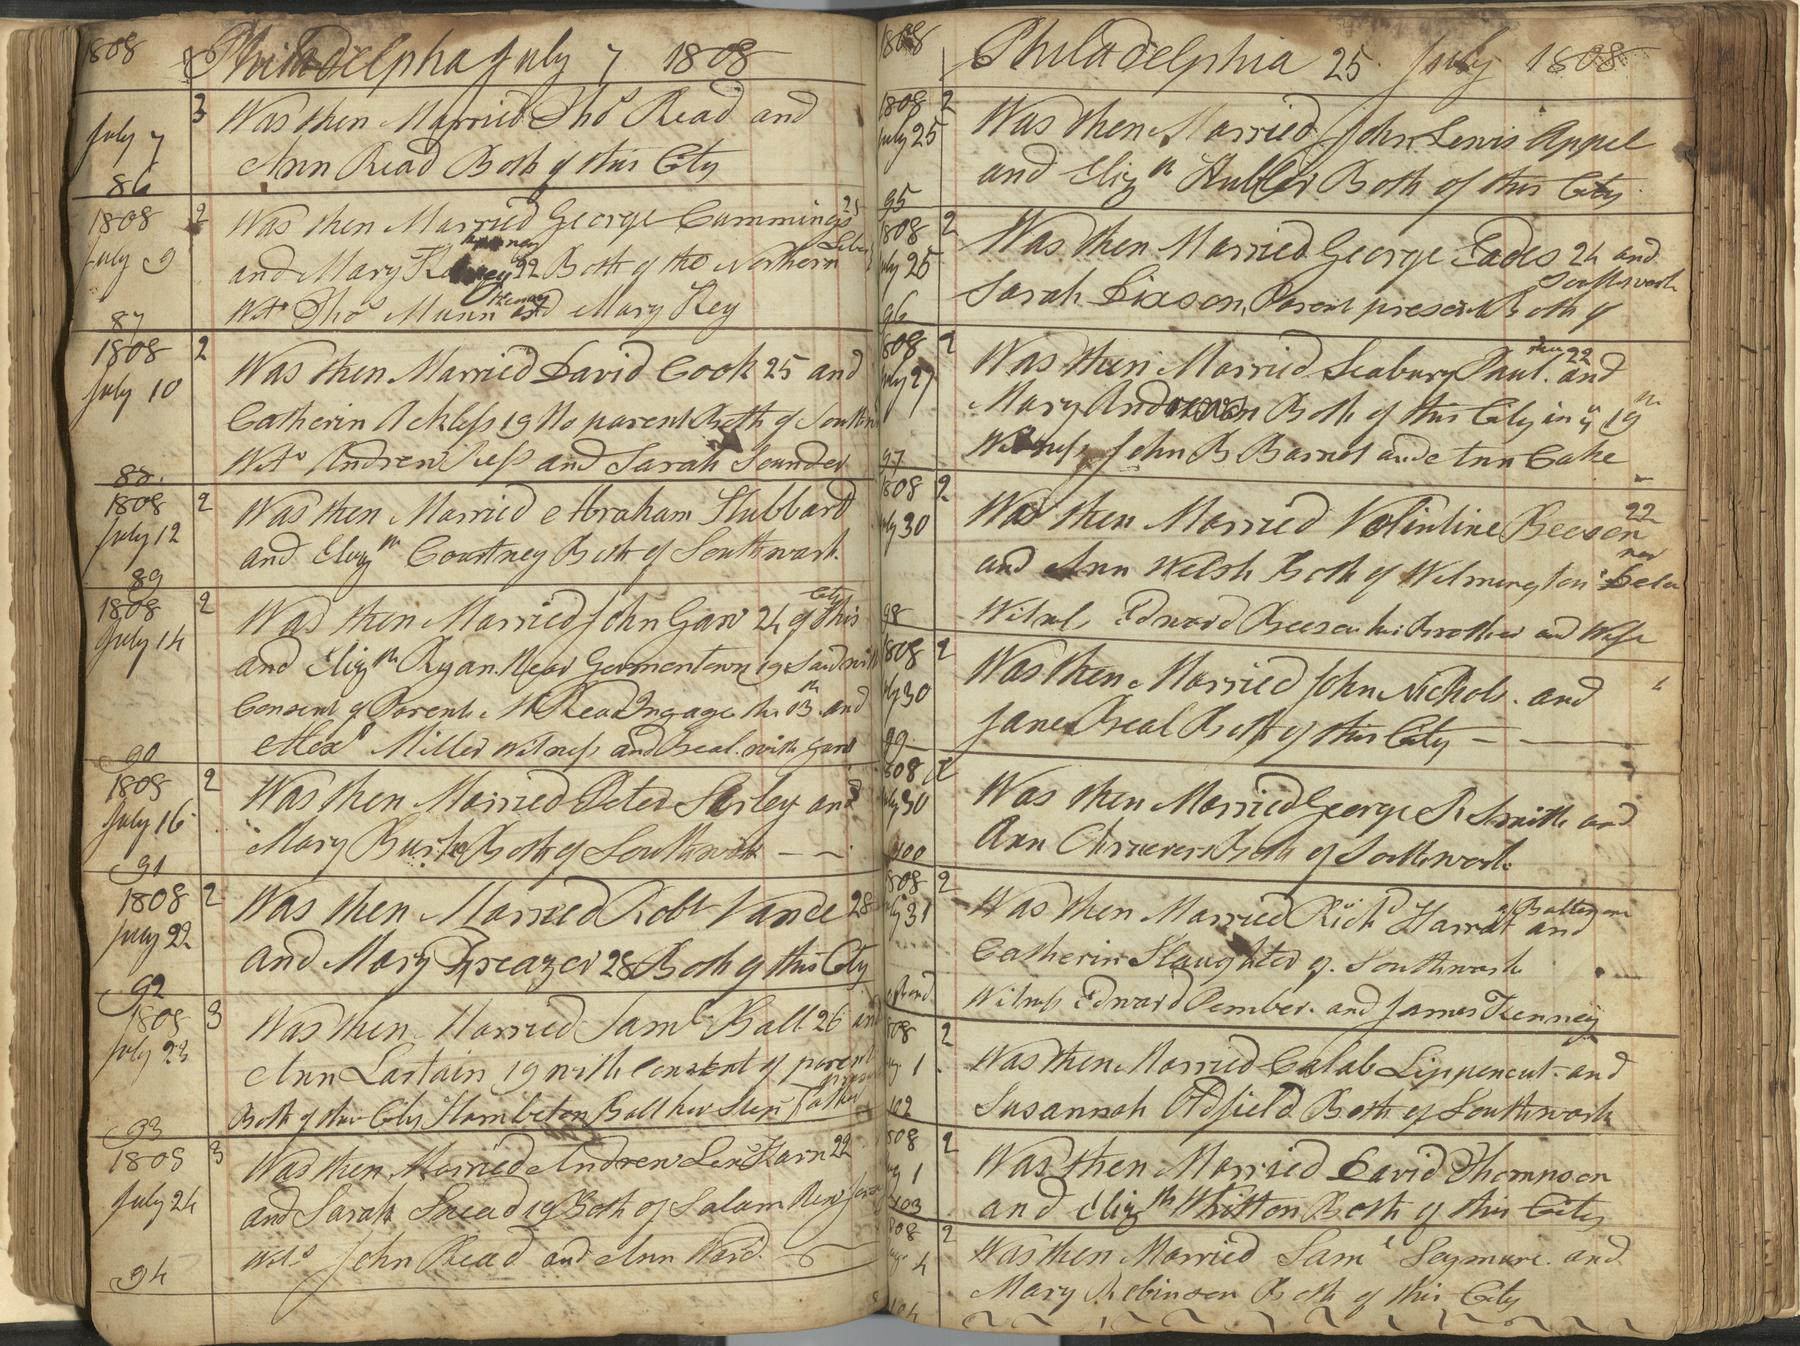 1808 Philadelpha July 7 1808
3 Was then Married Thos Read and
July 7
Ann Read Both of this City
86
1808 2 Was then Married George Cummings 25
July 9
and Mary 22 Both of the Northern Liber
Wts Thos Munn and Mary Key
87
1808 2
July 10
Was then Married David Cook 25 and
Catherin Ackless 19 No parent Both of South
Wts Andrew and Sarah Sounder
88
1808 2 Was then Married Abraham Hubbard
July 12
and Elizth Courtney Both of Southwark
89
1808 2 Was then Married John Gaw 24 of this City
July 14
and Elizth Ryan Near Germentown 19 Said with
Consent of Parent Read Ingage the 13th and
Alexr Miller Witness and Beal with Gaw
90
1808 2 Was then Married Peter and
July 16
Mary Both of Southwark
91
1808 2 Was then Married Robt Vance 28
July 22
and Mary 28 Both of this City
92
1808 3 Was then Married Saml Ball 26 and
July 23
Ann Lastain 19 with Consent of parent
Both of this City Hambleton Ball her Step Father
93
1808 3 Was then Married Andrew 22
July 24
and Sarah Snead 19 Both of Salam New Jers
Wits John Read and Ann Ward
94
1808 Philadelphia 25 July 1808
1808 2
July 25 Was then Married John Lewis Appel
and Elizth Hubler Both of this City
95
1808 2 Was then Married George Eades 24 and
July 25
Sarah Dixson, Parent present Both of Southwark
96
1808 2 Was then Married Seabury Paul 22 and
July 27
Mary Anderson Both of this City in ye 19th
Witness John B Barnot and Ann Cake
97
1808 2 Was then Married Volintine Beeson 22
July 30
and Ann Welsh Both of Wilmington Dela
Witness Edward Beeson his Brother and Wife
98
1808 2
July 30 Was then Married John Nichols and
Jane Beal Both of this City
99
1808 2
July 30 Was then Married George R Smith and
Ann Both of Southwark
100
1808 2
July 31 Was then Married Richd Harrat of Baltimore and
Catherin Slaughter of Southwark
Witness Edward Pember and James Kenney
1808 2
Aug 1 Was then Married Calab Lippencut and
Susannah Oldfield Both of Southwark
102
1808 2 Was then Married David Thompson
Aug 1
and Elizth Whitton Both of this City
103
1808 2 Was then Married Saml Seymure and
Aug 4
Mary Robinson Both of this City
104